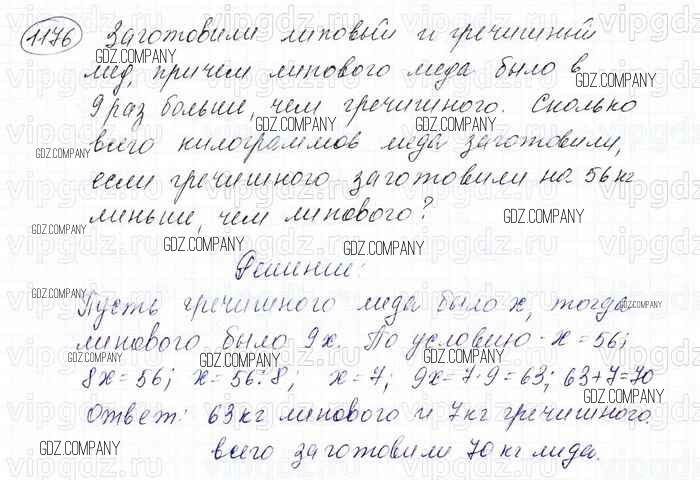 1176 Заготовили липовый и гречишный
мед, причем липового меда было в
9 раз больше, чем гречишного. Сколько
всего килограммов меда заготовили,
если гречишного заготовили на 56 кг
меньше, чем липового?
Решение:
Пусть гречишного меда было x, тогда
липового было 9x. По условию - x = 56;
8x = 56; x = 56:8; x = 7; 9x = 7·9 = 63; 63+7=70
Ответ: 63 кг липового и 7 кг гречишного.
всего заготовили 70 кг меда.